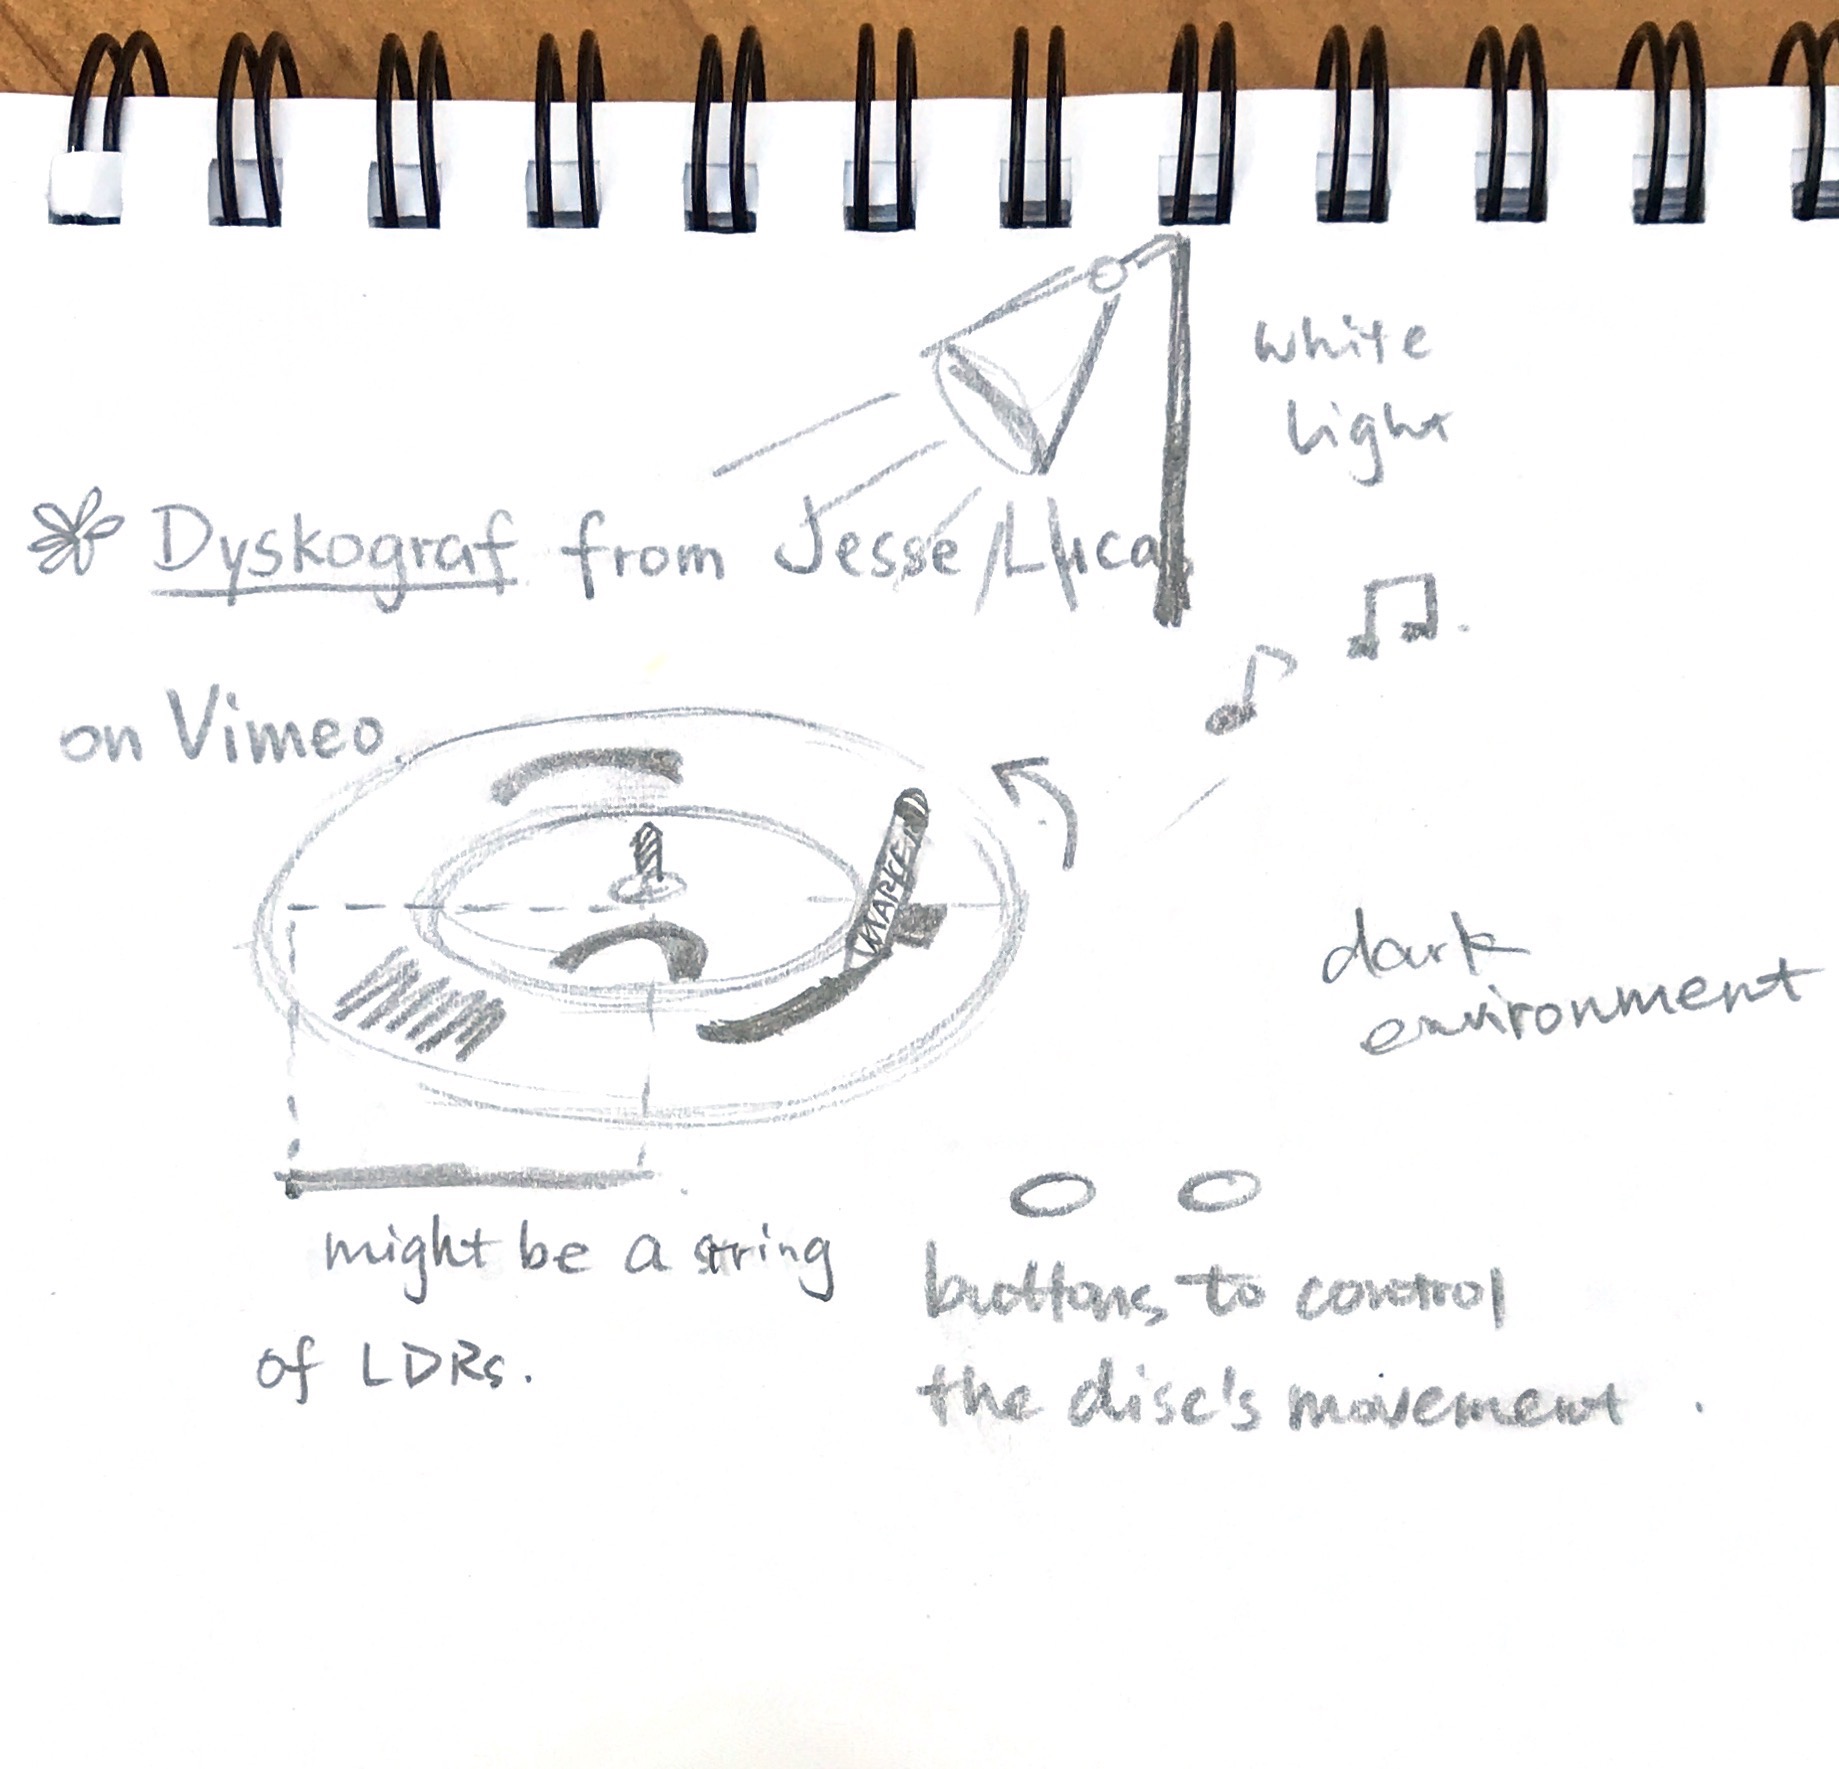 white
light
Dyskograf from Jesse/Lucas
on Vimeo
MARKE
dark
environment
might be a string
of LDRs.
buttons to control
the disc's movement.